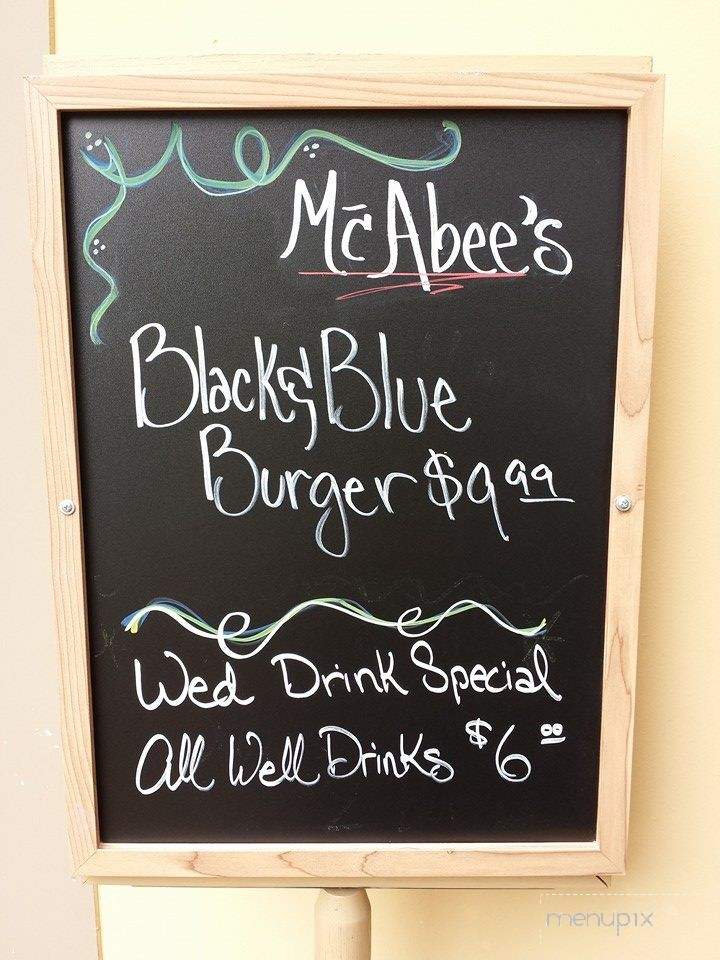 McAbee's
Black & Blue
Burger $9.99
Wed Drink Special
All Well Drinks $6.00
menupix